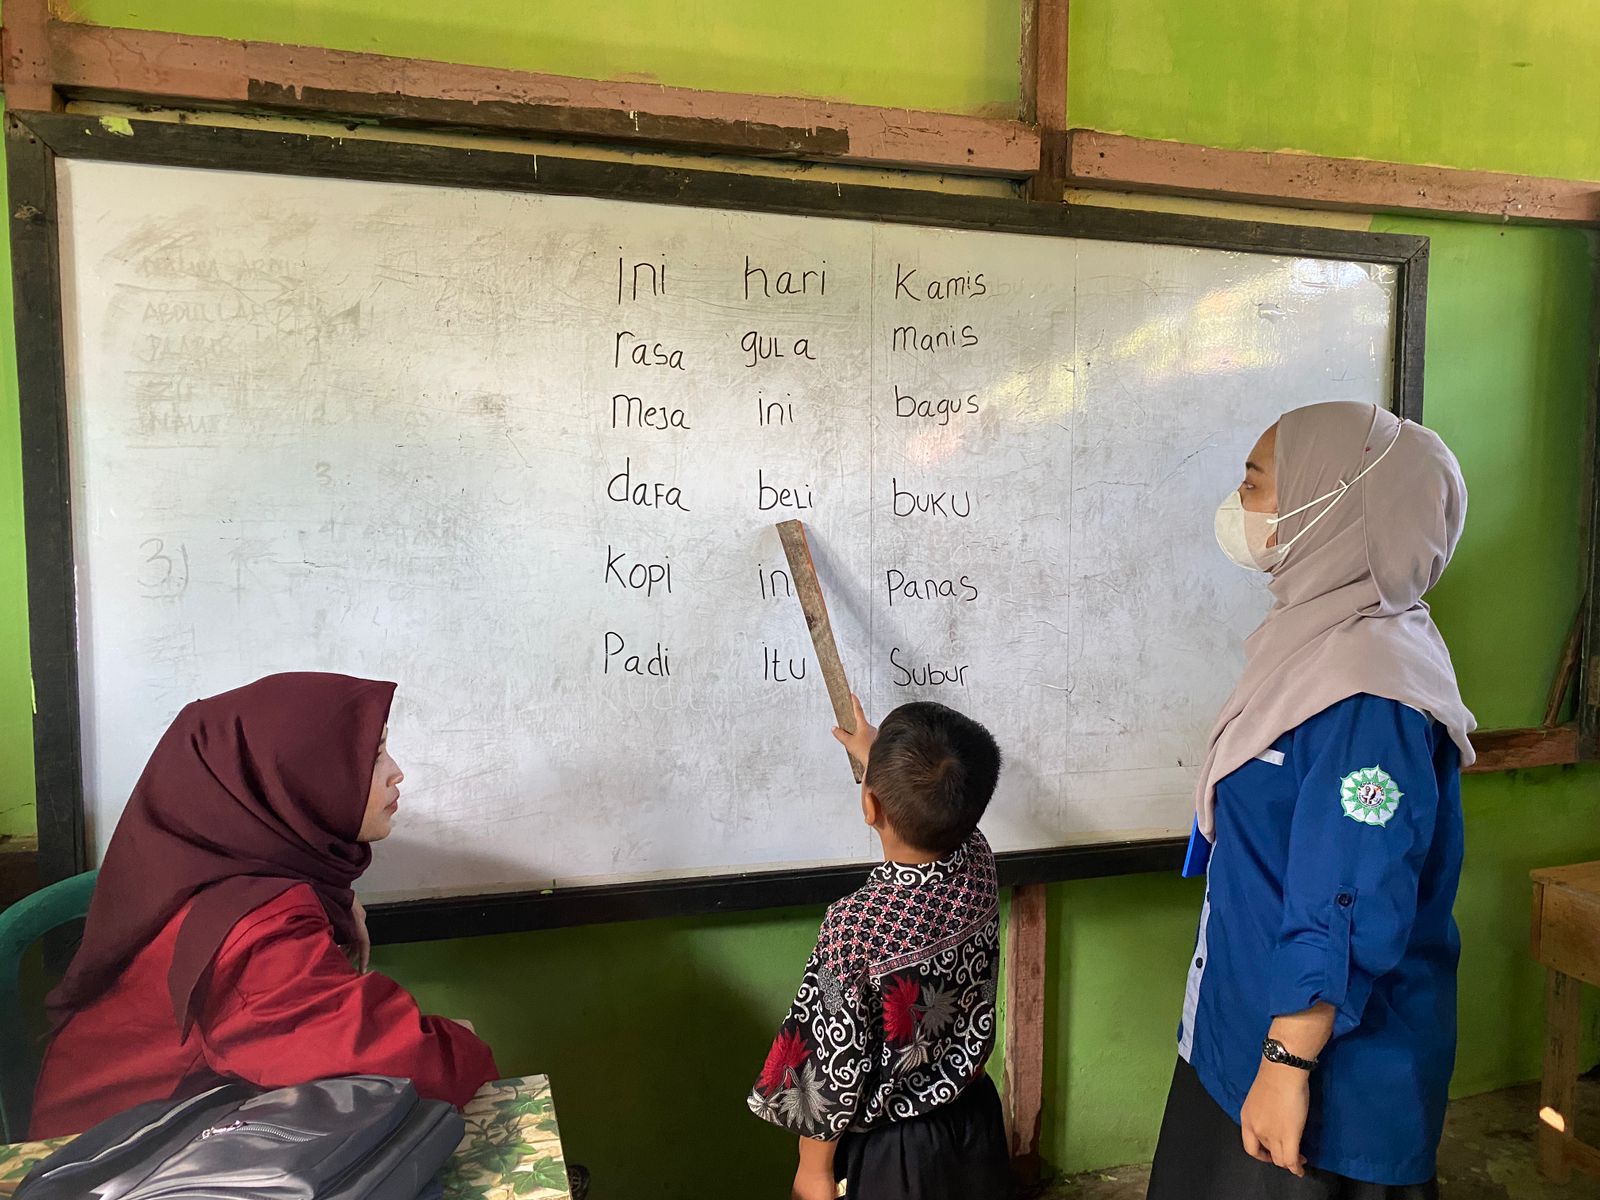 ini hari Kamis
rasa gula manis
meja ini bagus
dafa beli buku
Kopi ini Panas
Padi itu Subur
3.
3)